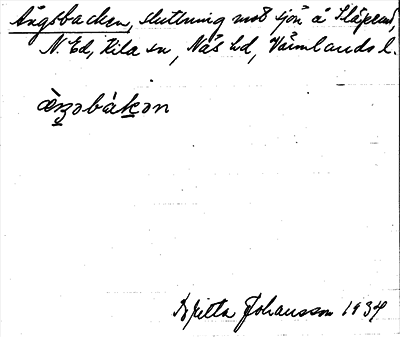 Ängsbacken, sluttning mot sjön å Släpend,
N. Ed, Kila sn, Näs hd, Värmlands l.
æ̀ŋzəbákən
Britta Johansson 1934